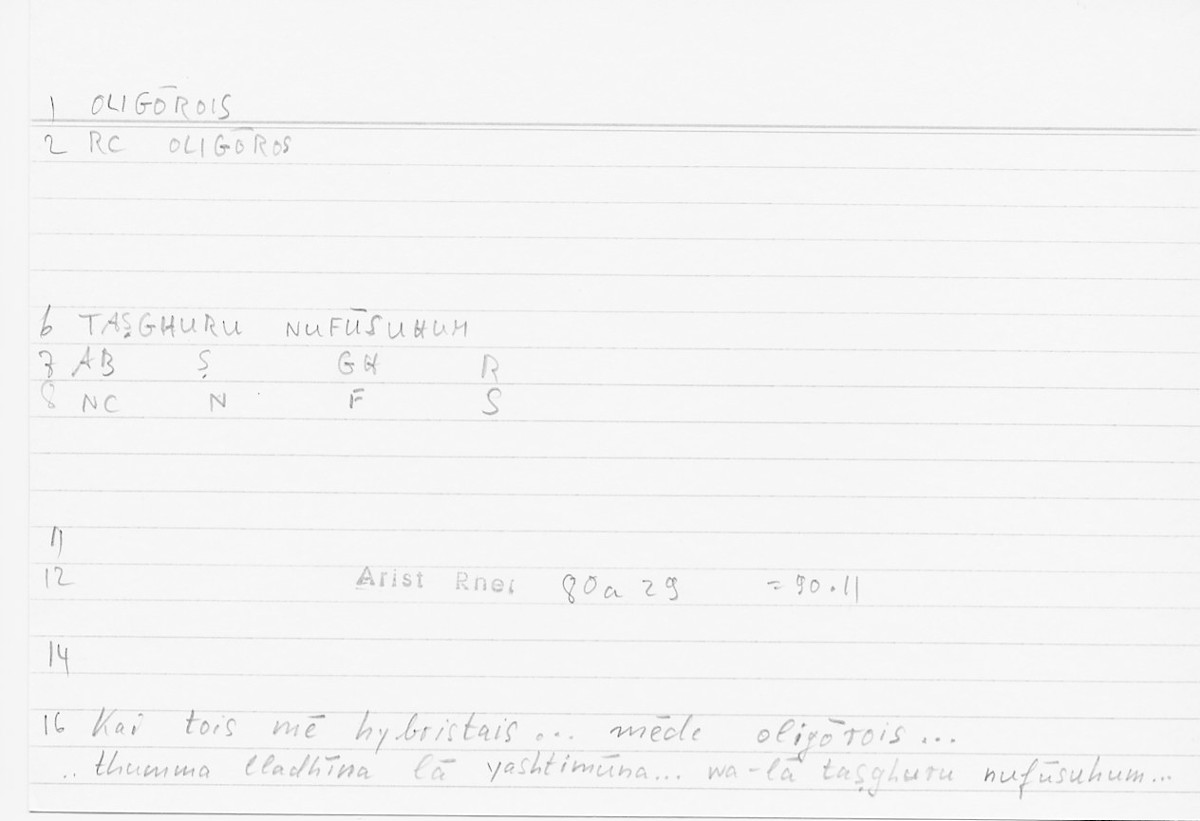 1 OLIGŌROIS
2 RC OLIGŌROS
6 TAṢGHURU NUFŪSUHUM
7 AB Ṣ GH R
8 NC N F S
11
12 Arist Rhet 80a 29 = 90.11
14
16 Kai tois mē hybristais... mēde oligōrois...
.. thumma lladhīna lā yashtimūna... wa-lā taṣghuru nufūsuhum...